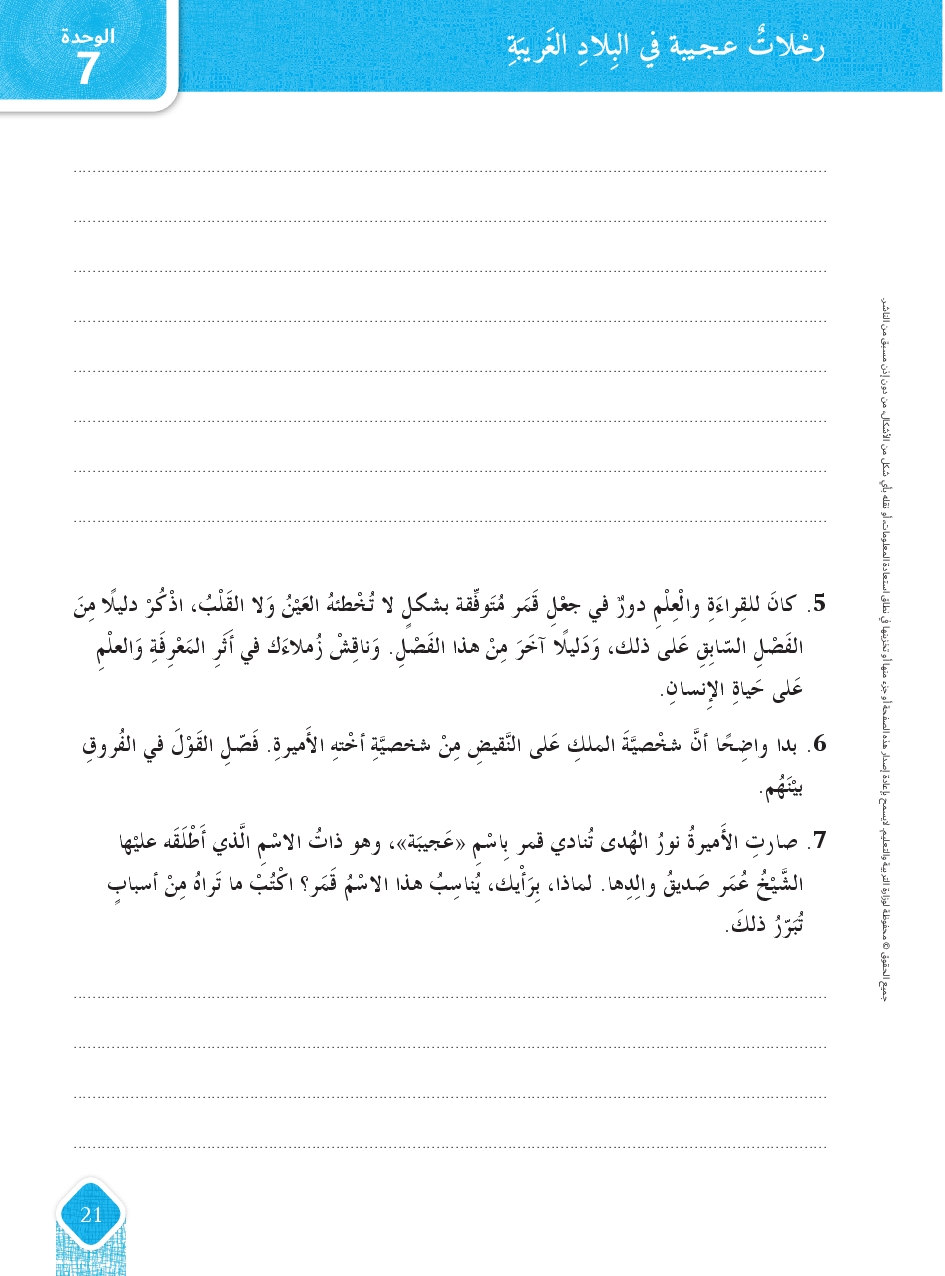 رحْلاتٌ عـجـيبة في البِلادِ الغَريبَةِ
الوحدة
7
5. كانَ للقِراءَةِ والْعِلْمِ دورٌ في جعْلِ قَمَر مُتَوفِّقة بشكلٍ لا تُخْطئهُ العَيْنُ وَلا القَلْبُ، اذْكُرْ دليلًا مِنَ
الفَصْلِ السّابِقِ عَلى ذلك، وَدَليلًا آخَرَ مِنْ هذا الفَصْلِ. وَناقِشْ زُملاءَك في أَثَرِ المَعْرِفَةِ وَالعلْمِ
عَلى حَياةِ الإنسانِ.
6. بدا واضِحًا أنَّ شخْصيَّةَ الملكِ عَلى النَّقيضِ مِنْ شخصيَّةِ أخْتهِ الأميرةِ. فَصّلِ القَوْلَ في الفُروقِ
بيْنَهُم.
7. صارتِ الأَميرةُ نورُ الهُدى تُنادي قمر بِاسْمِ «عَجيبَة»، وهو ذاتُ الاسْمِ الَّذي أَطْلَقَه عليْها
الشَّيْخُ عُمَر صَديقُ والِدِها. لماذا، بِرَأْيك، يُناسِبُ هذا الاسْمُ قَمَر؟ اكْتُبْ ما تَراهُ مِنْ أسبابٍ
تُبَرّرُ ذلكَ.
جميع الحقوق © محفوظة لوزارة التربية والتعليم. لايسمح بإعادة إصدار هذه الصفحة أو جزء منها أو تخزينها في نطاق استعادة المعلومات، أو نقله بأي شكل من الأشكال، من دون إذن مسبق من الناشر.
21